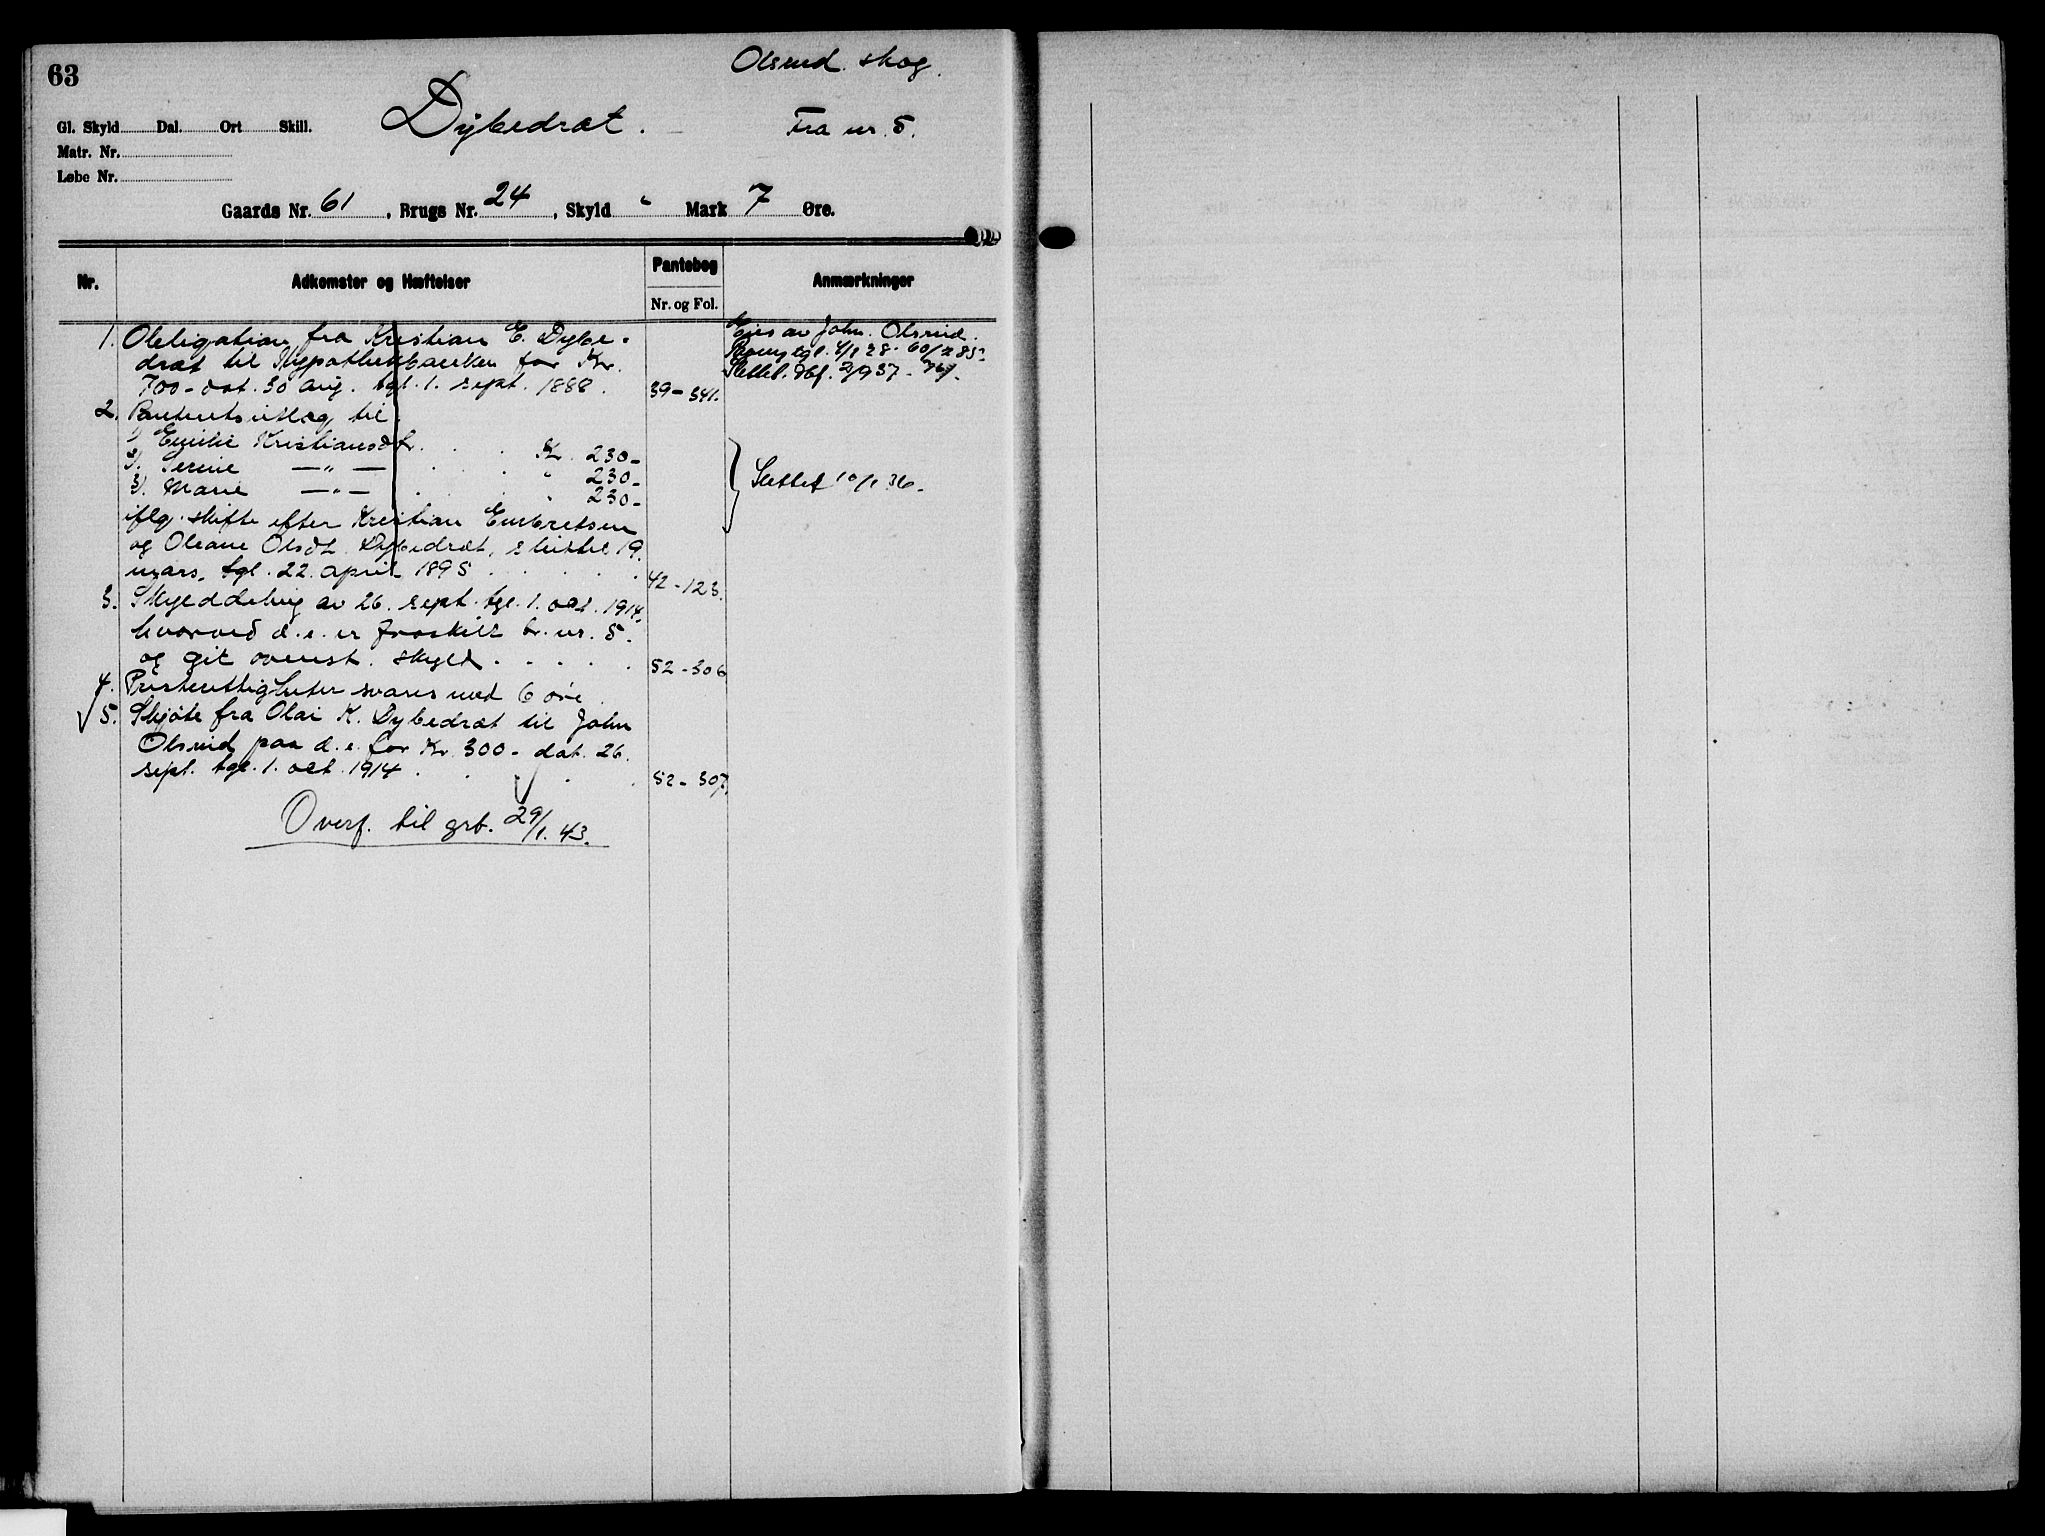 63
Olsrud skog.
Gl. Skyld Dal. Ort Skill.
Dybedræt.
Fra nr. 5.
Matr. Nr.
Løbe Nr.
Gaards Nr. 61, Brugs Nr. 24, Skyld " Mark 7 Øre.
Nr. Adkomster og Hæftelser Pantebog Nr. og Fol. Anmærkninger
1. Obligation fra Kristian E. Dybe-
dræt til Hypothekbanken for Kr.
700- dat. 30 aug. tgl. 1. sept. 1888. 39-341.
Eies av John Olsrud.
Slettet
2. Panteutlæg til
1) Emilie Kristiansdt. Kr. 230-
2). Serine —"— " 230-
3). Marie —"— " 230-
Slettet 10/1 36.
iflg. skifte efter Kristian Embretsen
og Oleane Olsdt. Dybedræt, sluttet 19.
mars, tgl. 22. april 1895 42-123.
3. Skylddeling av 26. sept. tgl. 1. oct. 1914,
hvorved d. e. er fraskilt br. nr. 5.
og git ovenst. skyld. 52-306
4. Presterettigheter svares med 6 øre.
5. Skjøte fra Olai K. Dybedræt til John
Olsrud paa d. e. for Kr. 300- dat. 26.
sept. tgl. 1. oct. 1914. 52-307,
Overf. til grb. 29/1. 43.